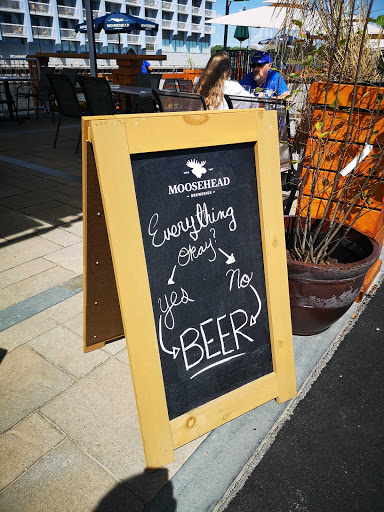 MOOSEHEAD
MOOSEHEAD
BREWERIES
Everything
okay?
yes No
BEER